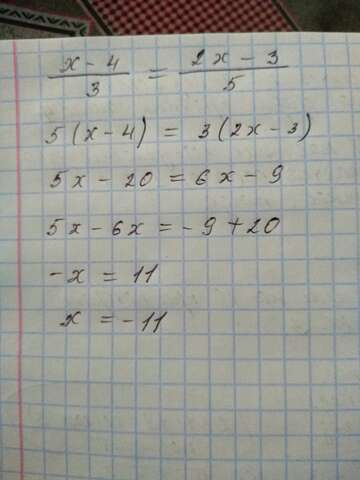 x - 4 / 3 = 2x - 3 / 5
5(x - 4) = 3(2x - 3)
5x - 20 = 6x - 9
5x - 6x = -9 + 20
-x = 11
x = -11